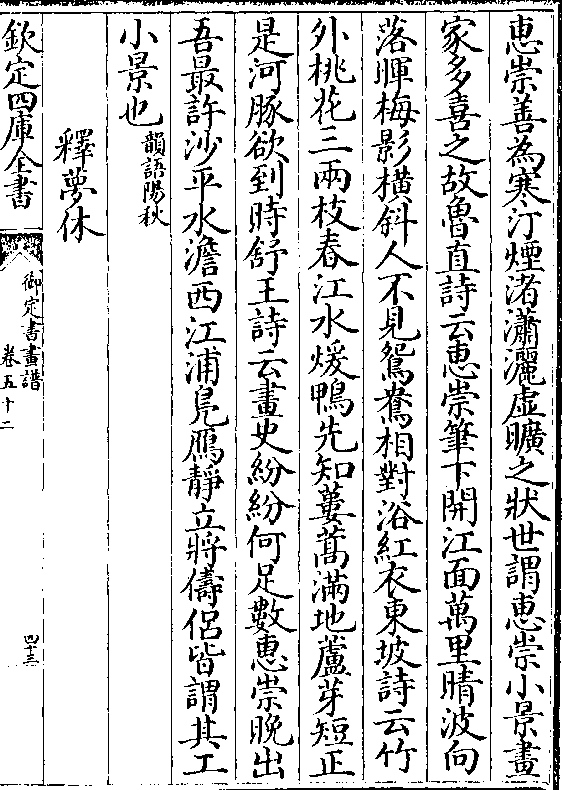 惠崇善為寒汀煙渚瀟灑虛曠之狀世謂惠崇小景畫
家多喜之故魯直詩云惠崇筆下開江面萬里晴波向
落暉梅影橫斜人不見鴛鴦相對浴紅衣東坡詩云竹
外桃花三兩枝春江水煖鴨先知蔞蒿滿地蘆芽短正
是河豚欲到時舒王詩云畫史紛紛何足數惠崇晚出
吾最許沙平水澹西江浦鳬鴈靜立將儔侶皆謂其工
小景也韻語陽秋
釋夢休
欽定四庫全書
御定書畫譜
卷五十二
四十三